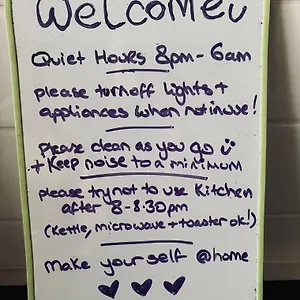 Welcome
Quiet Hours 8pm - 6am
please turnoff lights +
appliances when notinuse!
Please clean as you go
+ Keep noise to a minimum
please try not to use Kitchen
after 8-8.30pm
(Kettle, microwave + toaster ok!)
make your self @home